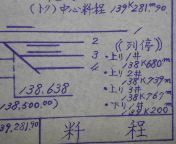 (トク)中心料程 139K281m90
2
3
4
《列停》
・上り1#
138K680m
・上り2#
138K739m
・上り3#
138K767m
・下り1#
139K200
138.638
(138.500.00)
139.281.90
料 程